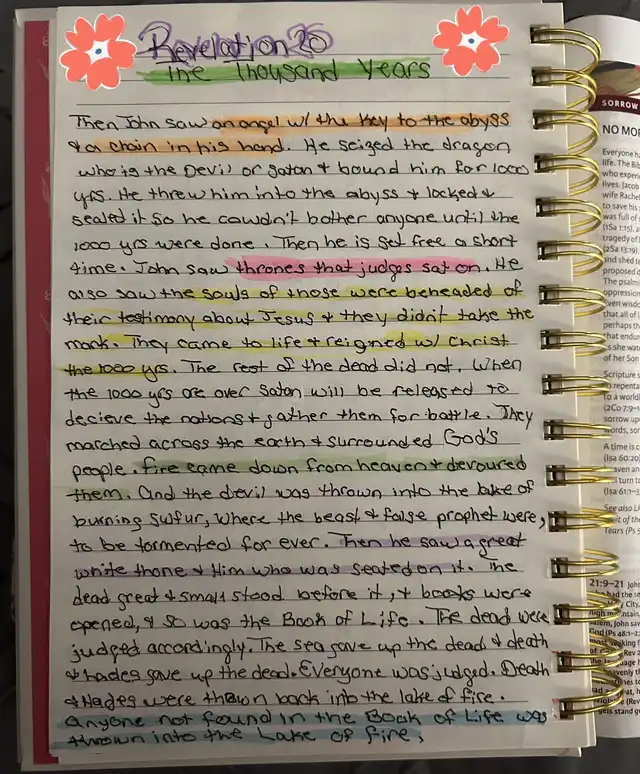 Revelation 20
The Thousand Years
Then John saw an angel w/ the key to the abyss
& a chain in his hand. He seized the dragon
who is the Devil or Satan & bound him for 1000
yrs. He threw him into the abyss & locked &
sealed it so he cawdn't bother anyone until the
1000 yrs were done. Then he is set free a short
time. John saw thrones that judges sat on. He
also saw the souls of those were beheaded of
their testimony about Jesus & they didn't take the
mark. They came to life & reigned w/ Christ
the 1000 yrs. The rest of the dead did not. When
the 1000 yrs are over Satan will be released to
decieve the nations & gather them for battle. They
marched across the earth & surrounded God's
people. fire came down from heaven & devoured
them. And the devil was thrown into the lake of
burning sulfur, where the beast & false prophet were,
to be tormented for ever. Then he saw a great
white thone & Him who was seated on it. The
dead great & small stood before it, & books were
opened, & so was the Book of Life. The dead were
judged accordingly. The sea gave up the dead & death
& hades gave up the dead. Everyone was judged. Death
& Hades were thrown back into the lake of fire.
Anyone not found in the Book of Life was
thrown into the Lake of fire.
SORROW
NO MO
Everyone ha
life. The Bib
who experie
lives. Jacob
wife Rache
to save his
was full of
(1Sa 1:15),
tragedy of
(2Sa 13:19).
and shed te
proposed
The psalmi
oppression
even wisdo
that all of l
perhaps th
that endur
s she wate
of her Son
Scripture s
repenta
to a world
(2Co 7:9-1
sorrow up
words, sor
A time is c
(Isa 60:20)
heaven an
ill turn t
(Isa 61:1-3
See also Li
it of the
Tears (Ps 5
21:9-21 John